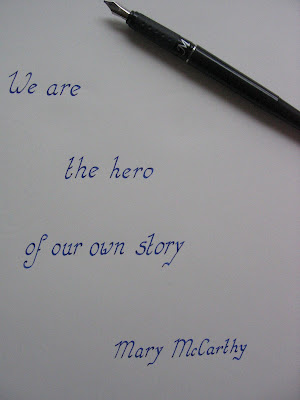 We are
the hero
of our own story
Mary McCarthy